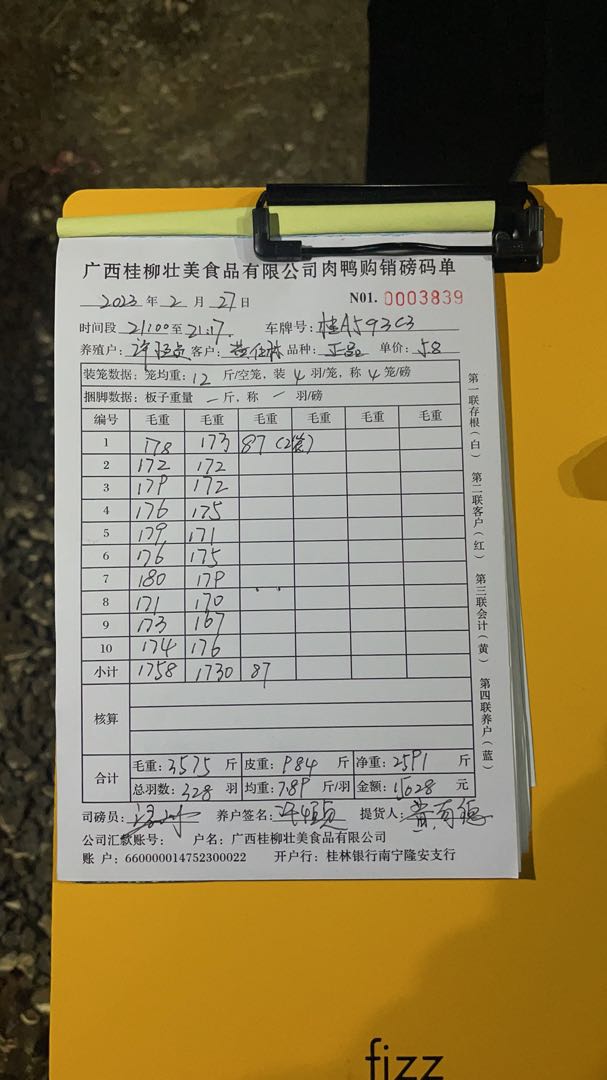 广西桂柳壮美食品有限公司肉鸭购销磅码单
2023 年 2 月 27 日 N01. 0003839
时间段 21:00 至 21:17. 车牌号: 桂A593C3
养殖户: 客户: 品种: 正品 单价: 5.8
装笼数据: 笼均重: 12 斤/空笼, 装 4 羽/笼, 称 4 笼/磅
捆脚数据: 板子重量 一 斤, 称 一 羽/磅
编号 毛重 毛重 毛重 毛重 毛重 毛重
1 178 173 87 (2笼)
2 172 172
3 179 172
4 176 175
5 179 171
6 176 175
7 180 179
8 171 170
9 173 167
10 174 176
小计 1758 1730 87
核算
合计 毛重: 3575 斤 皮重: 984 斤 净重: 2591 斤
总羽数: 328 羽 均重: 7.89 斤/羽 金额: 15028 元
司磅员: 养户签名: 提货人: 黄有德
公司汇款账号: 户名: 广西桂柳壮美食品有限公司
账 户: 660000014752300022 开户行: 桂林银行南宁隆安支行
第一联存根(白) 第二联客户(红) 第三联会计(黄) 第四联养户(蓝)
fizz